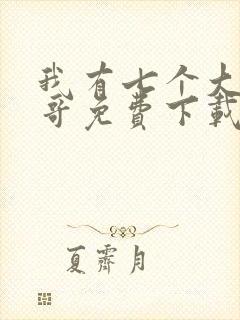 我有七个大
哥免费下载
夏霁月